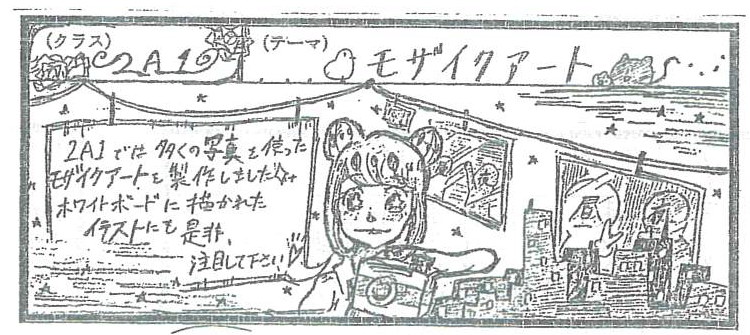 (クラス) 2A1
(テーマ) モザイクアート
2A1では多くの写真を使った
モザイクアートを製作しました
ホワイトボードに描かれた
イラストにも是非、
注目して下さい
昼
夜